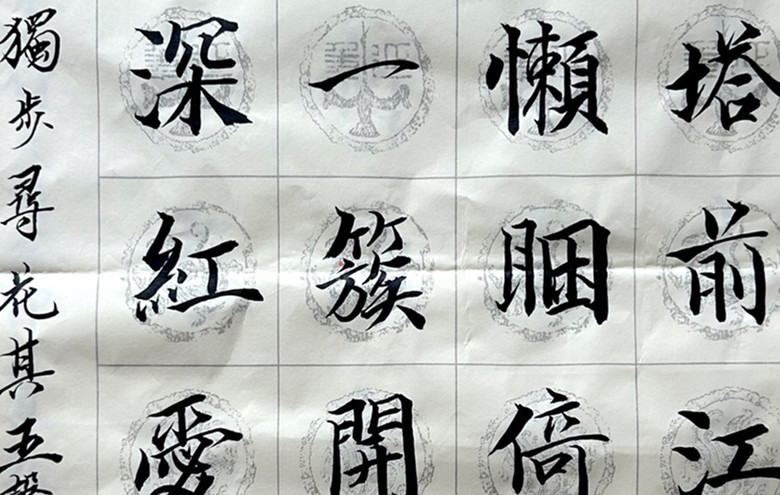 塔前江
懶睏倚
一簇開
深紅愛
獨步尋花其五